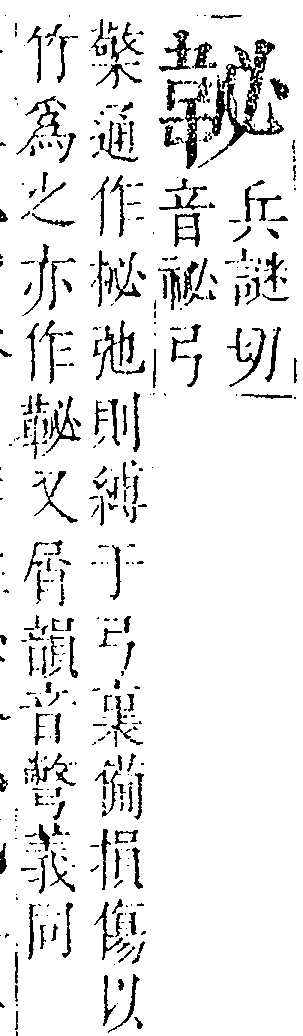 䪐
兵謎切
音祕弓
檠通作柲弛則縛于弓裏備損傷以
竹爲之亦作䩛又屑韻音彆義同